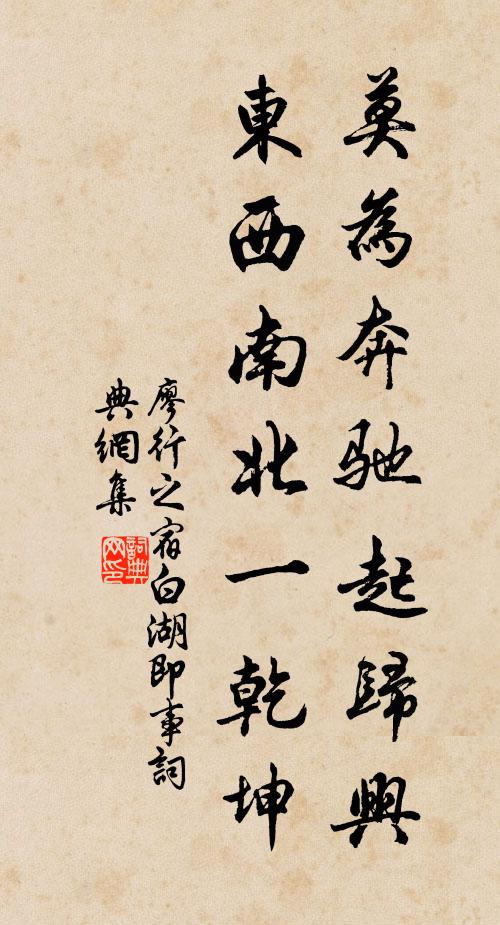 莫為奔馳起歸興
東西南北一乾坤
廖行之宿白湖即事詞
典網集
詞典
网印